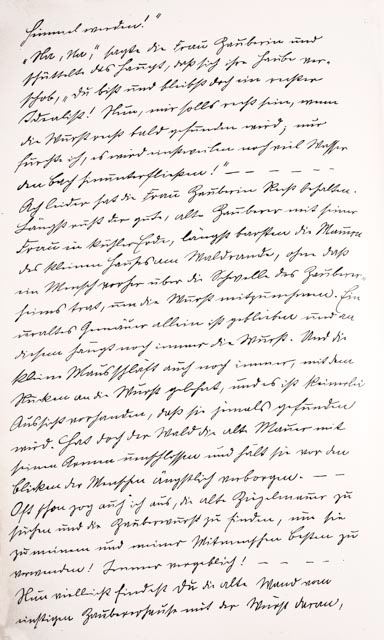 Himmel werden!"
„Na, Na," sagte die Frau Zauberin und
schüttelte das Haupt, daß sich ihre Haube ver-
schob, „Du bist und bleibst doch ein rechter
Idealist! Nun, mir solls recht sein, wenn
die Wurst recht bald gefunden wird, nur
fürcht ich, es wird einstweilen noch viel Wasser
den Bach hinunterfließen!" – – – – – –
Ach leider hat die Frau Zauberin Recht behalten.
Längst ruht der gute, alte Zauberer mit seiner
Frau in kühler Erde, längst barsten die Mauern
des kleinen Hauses am Waldrande, ohne daß
ein Mensch vorher über die Schwelle des Zauber-
heims trat, um die Wurst mitzunehmen. Ein
uraltes Gemäuer allein ist geblieben und an
diesem hängt noch immer die Wurst. Und die
kleine Maus schläft auch noch immer, mit dem
Rücken an die Wurst gelehnt, und es ist keinerlei
Aussicht vorhanden, daß sie jemals gefunden
wird. Hat doch der Wald die alte Mauer mit
seinen Armen umschlossen und hält sie vor den
Blicken der Menschen ängstlich verborgen. – –
Oft schon zog auch ich aus, die alte Ziegelmauer zu
suchen und die Zauberwurst zu finden, um sie
zu meinem und meiner Mitmenschen Besten zu
verwenden! Immer vergeblich! – – – –
Nun vielleicht findest Du die alte Wand vom
einstigen Zaubererhause mit der Wurst daran,